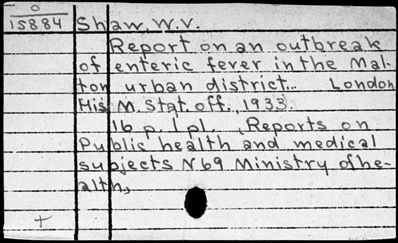 0
15884
Shaw, W.V.
Report on an outbreak
of enteric fever in the Mal-
ton urban district... London
His M. Stat. off., 1933.
16 p. 1 pl. (Reports on
Public health and medical
subjects N 69 Ministry of he-
alth,
+